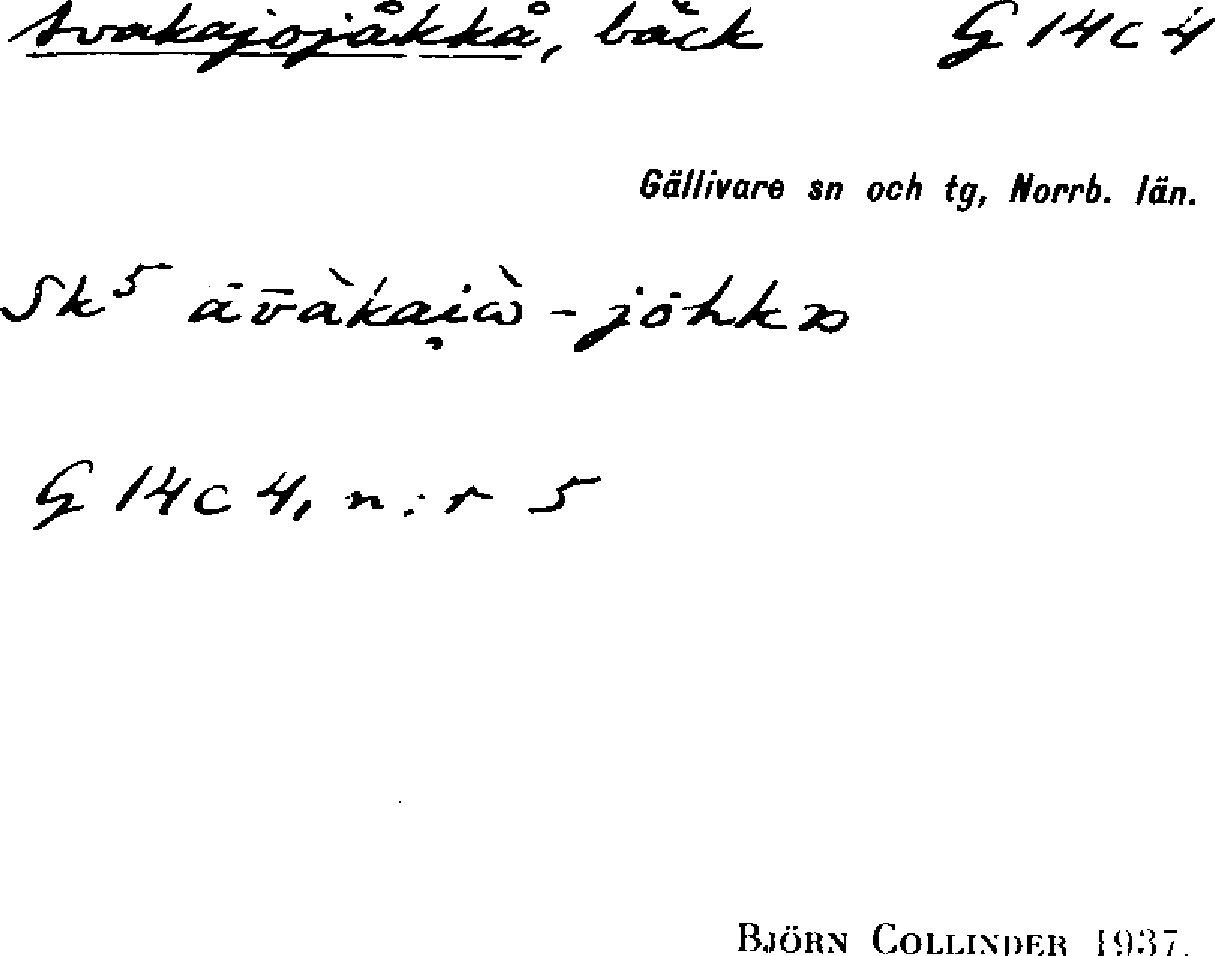 Avakajojåkkå, bäck G 14 c 4
Gällivare sn och tg, Norrb. län.
Sk⁵ āv̄àkai̯ὼ - jōhkᴔ
G 14 c 4, n:r 5
BJÖRN COLLINDER 1937.